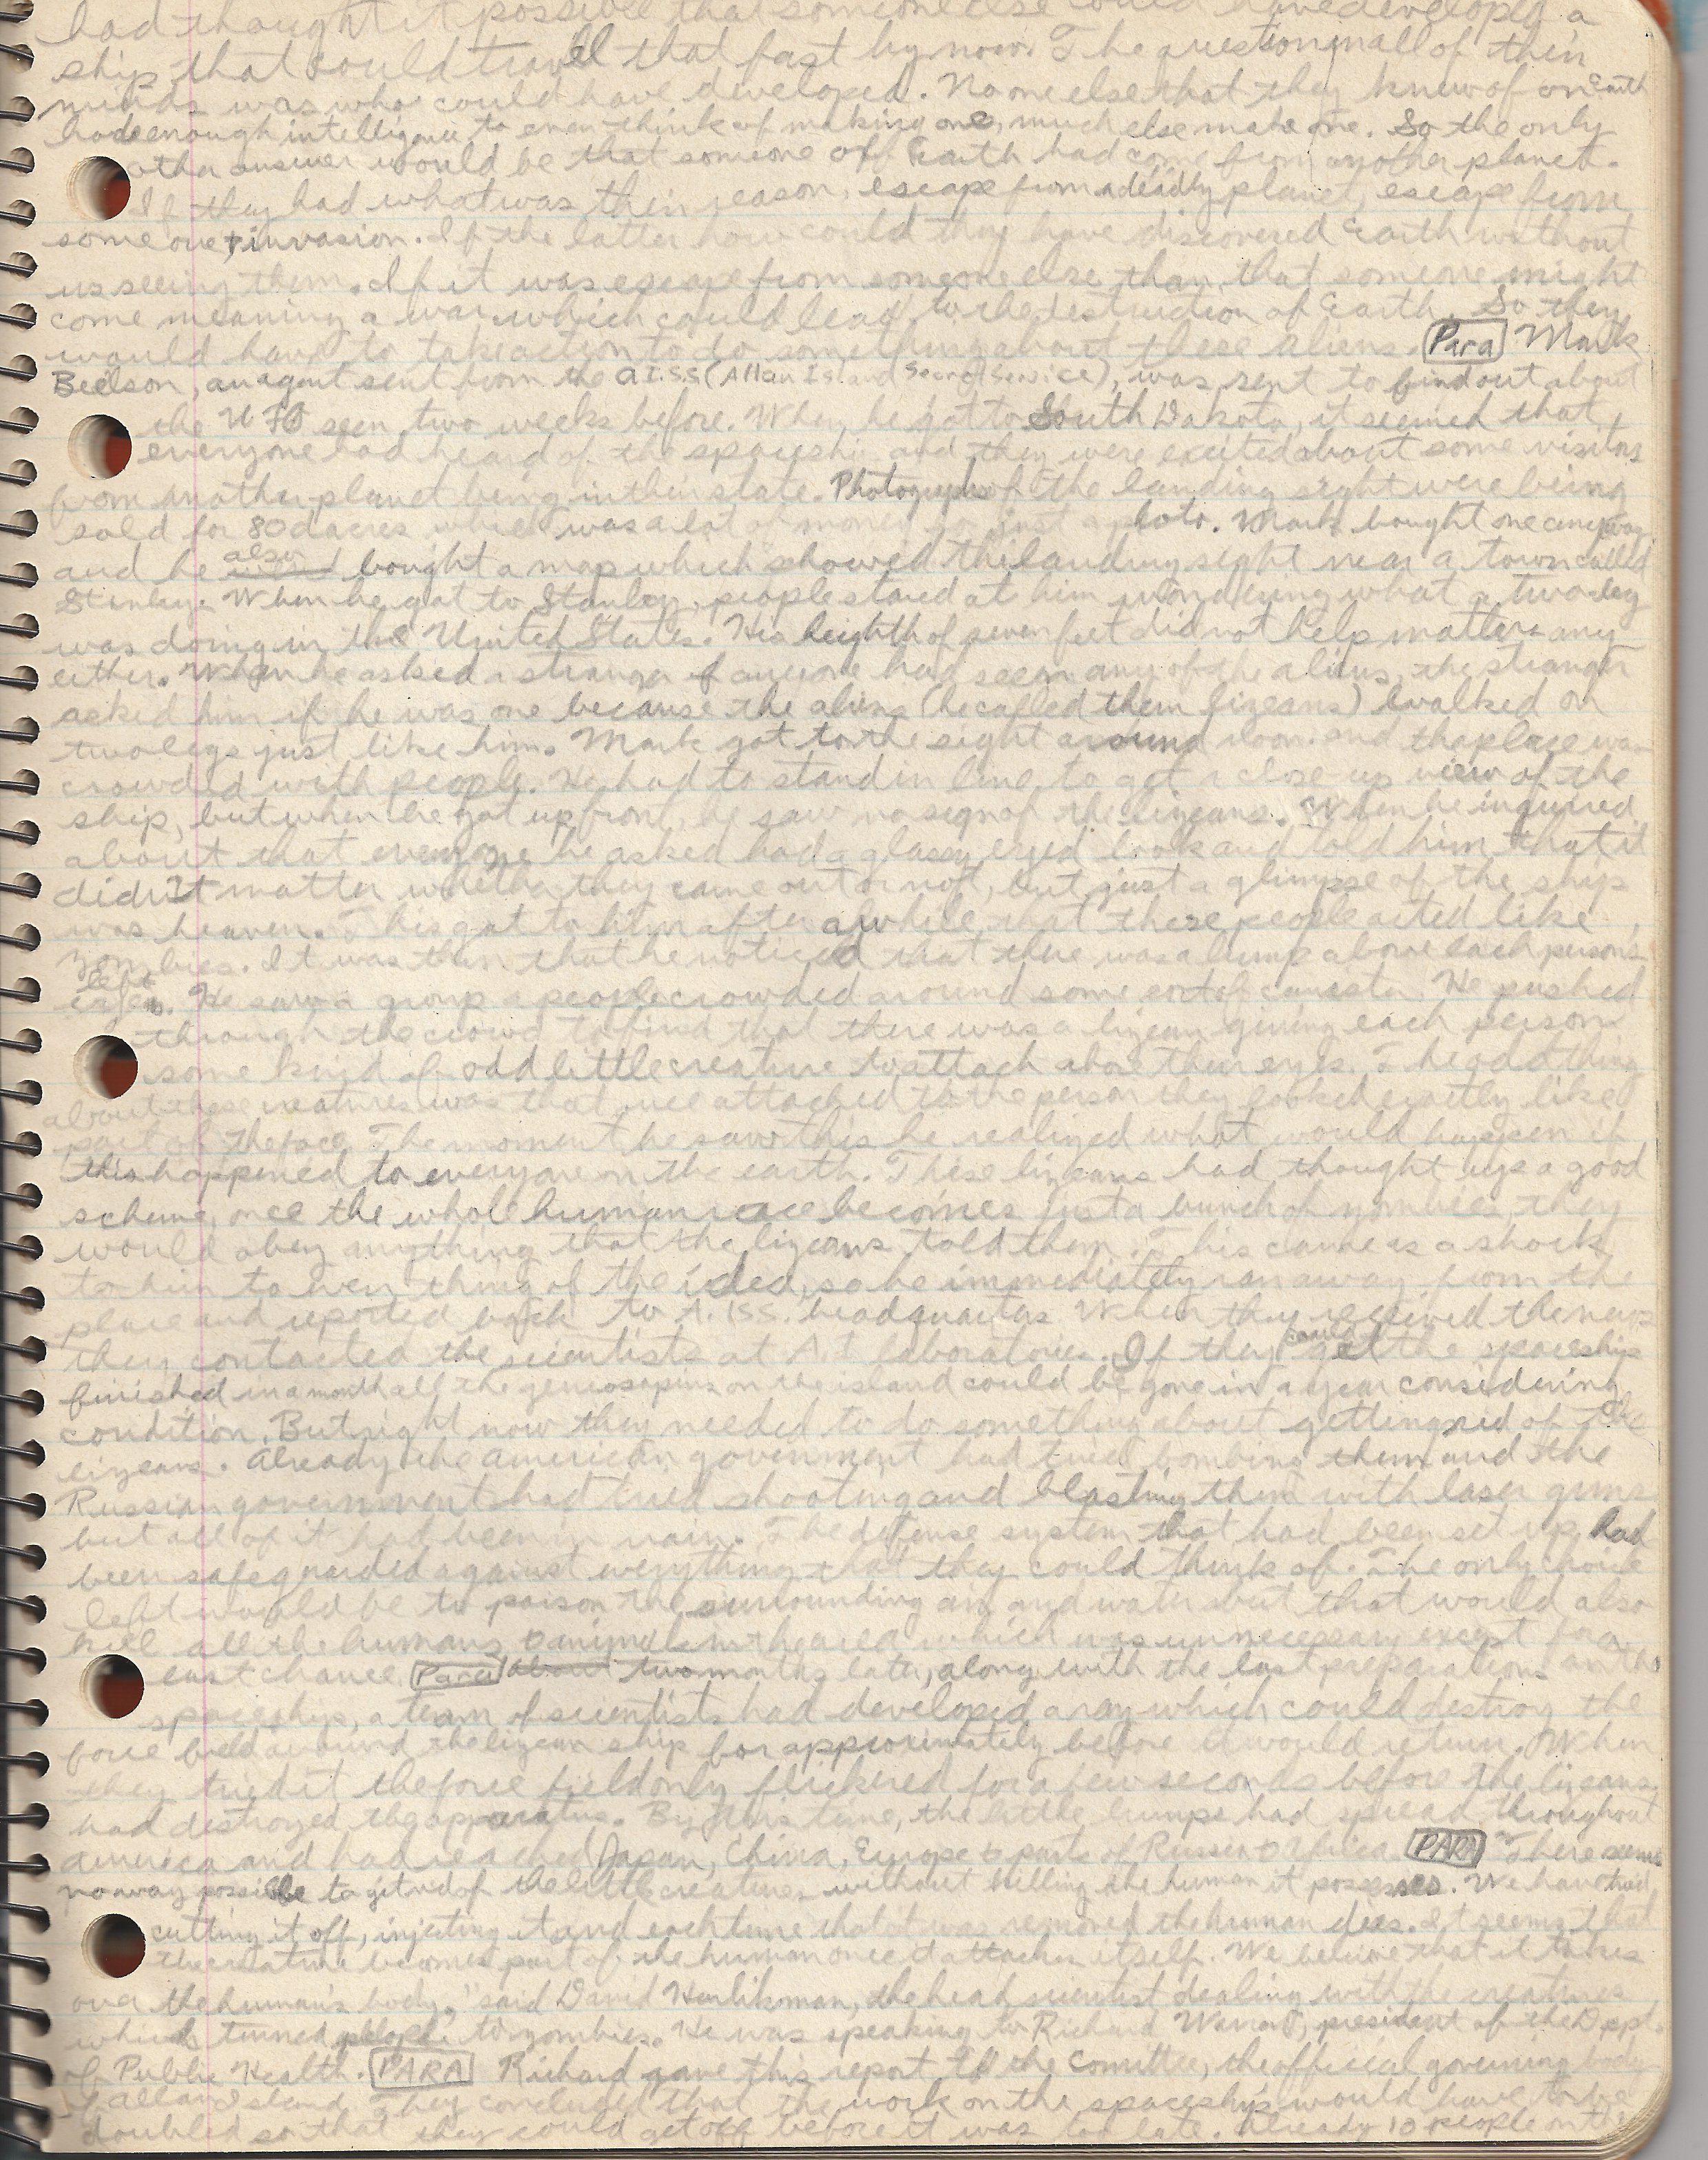 had thought it possible that someone else could have developed a
ship that could travel that fast by now. The question in all of their
minds was who could have developed. No one else that they knew of on Earth
had enough intelligence to even think of making one, much else make one. So the only
other answer would be that someone off Earth had come from another planet.
If they had what was their reason, escape from a deadly planet, escape from
someone, invasion. If the latter how could they have discovered Earth without
us seeing them. If it was escape from someone else than that someone might
come meaning a war which could lead to the destruction of Earth. So they
would have to take action to do something about these aliens. Para Mark
Beelson, an agent sent from the a.I.S.S (Allan Island Secret Service), was sent to find out about
the UFO seen two weeks before. When he got to South Dakota, it seemed that
everyone had heard of the spaceship and they were excited about some visitors
from another planet being in their state. Photographs of the landing sight were being
sold for 80 dacres which was a lot of money for just a photo. Mark bought one anyway
and he also bought a map which showed the landing sight near a town called
Stanley. When he got to Stanley, people stared at him wondering what a twoleg
was doing in the United States. His heighth of seven feet did not help matters any
either. When he asked a stranger if anyone had seen any of the aliens, the stranger
asked him if he was one because the aliens (he called them lizeans) walked on
two legs just like him. Mark got to the sight around noon and the place was
crowded with people. He had to stand in line to get a close up view of the
ship, but when he got up front, he saw no sign of the lizeans. When he inquired
about that everyone he asked had a glassy eyed look and told him that it
didn't matter whether they came out or not, but just a glimpse of the ship
was heaven. This got to him after a while that these people acted like
zombies. It was then that he noticed that there was a lump above each person's
left
eye. He saw a group a people crowded around some sort of canister. He pushed
through the crowd to find that there was a lizean giving each person
some kind of odd little creature to attach above their eyes. The odd thing
about these creatures was that once attached to the person they looked exactly like
part of the face. The moment he saw this he realized what would happen if
this happened to everyone on the earth. These lizeans had thought up a good
scheme, once the whole human race becomes just a bunch of zombies, they
would obey anything that the lizeans told them. This came as a shock
to him to even thing of the idea, so he immediately ran away from the
place and reported back to A.ISS. headquarters. When they received the news
they contacted the scientists at A.I laboratories. If they could get the spaceships
finished in a month all the geniosapiens on the island could be gone in a year considering
condition. But right now they needed to do something about getting rid of the
lizeans. Already the American government had tried bombing them and the
Russian government had tried shooting and blasting them with laser guns
but all of it had been in vain. The defense system that had been set up had
been safeguarded against everything that they could think of. The only choice
left would be to poison the surrounding air and water but that would also
kill all the humans & animals in the area which was unnecessary except for a
last chance. Para about two months later, along with the last preparations on the
spaceships, a team of scientists had developed a ray which could destroy the
force field around the lizean ship for approximately before it would return. When
they tried it the force field only flickered for a few seconds before the lizeans
had destroyed the apparatus. By this time, the little lumps had spread throughout
america and had reached Japan, China, Europe & parts of Russia & Africa. PARA "There seems
no way possible to get rid of the little creatures without killing the human it possesses. We have tried
cutting it off, injecting it and each time that it was removed the human dies. It seems that
the creature becomes part of the human once it attaches itself. We believe that it takes
over the human's body," said David Harlikman, the head scientist dealing with the creatures
which turned people to zombies. He was speaking to Richard, president of the Dept.
of Public Health. PARA Richard gave this report to the comittee, the official governing body
of allan Island. They concluded that the work on the spaceships would have to be
doubled so that they could get off before it was too late. Already 10 people on the